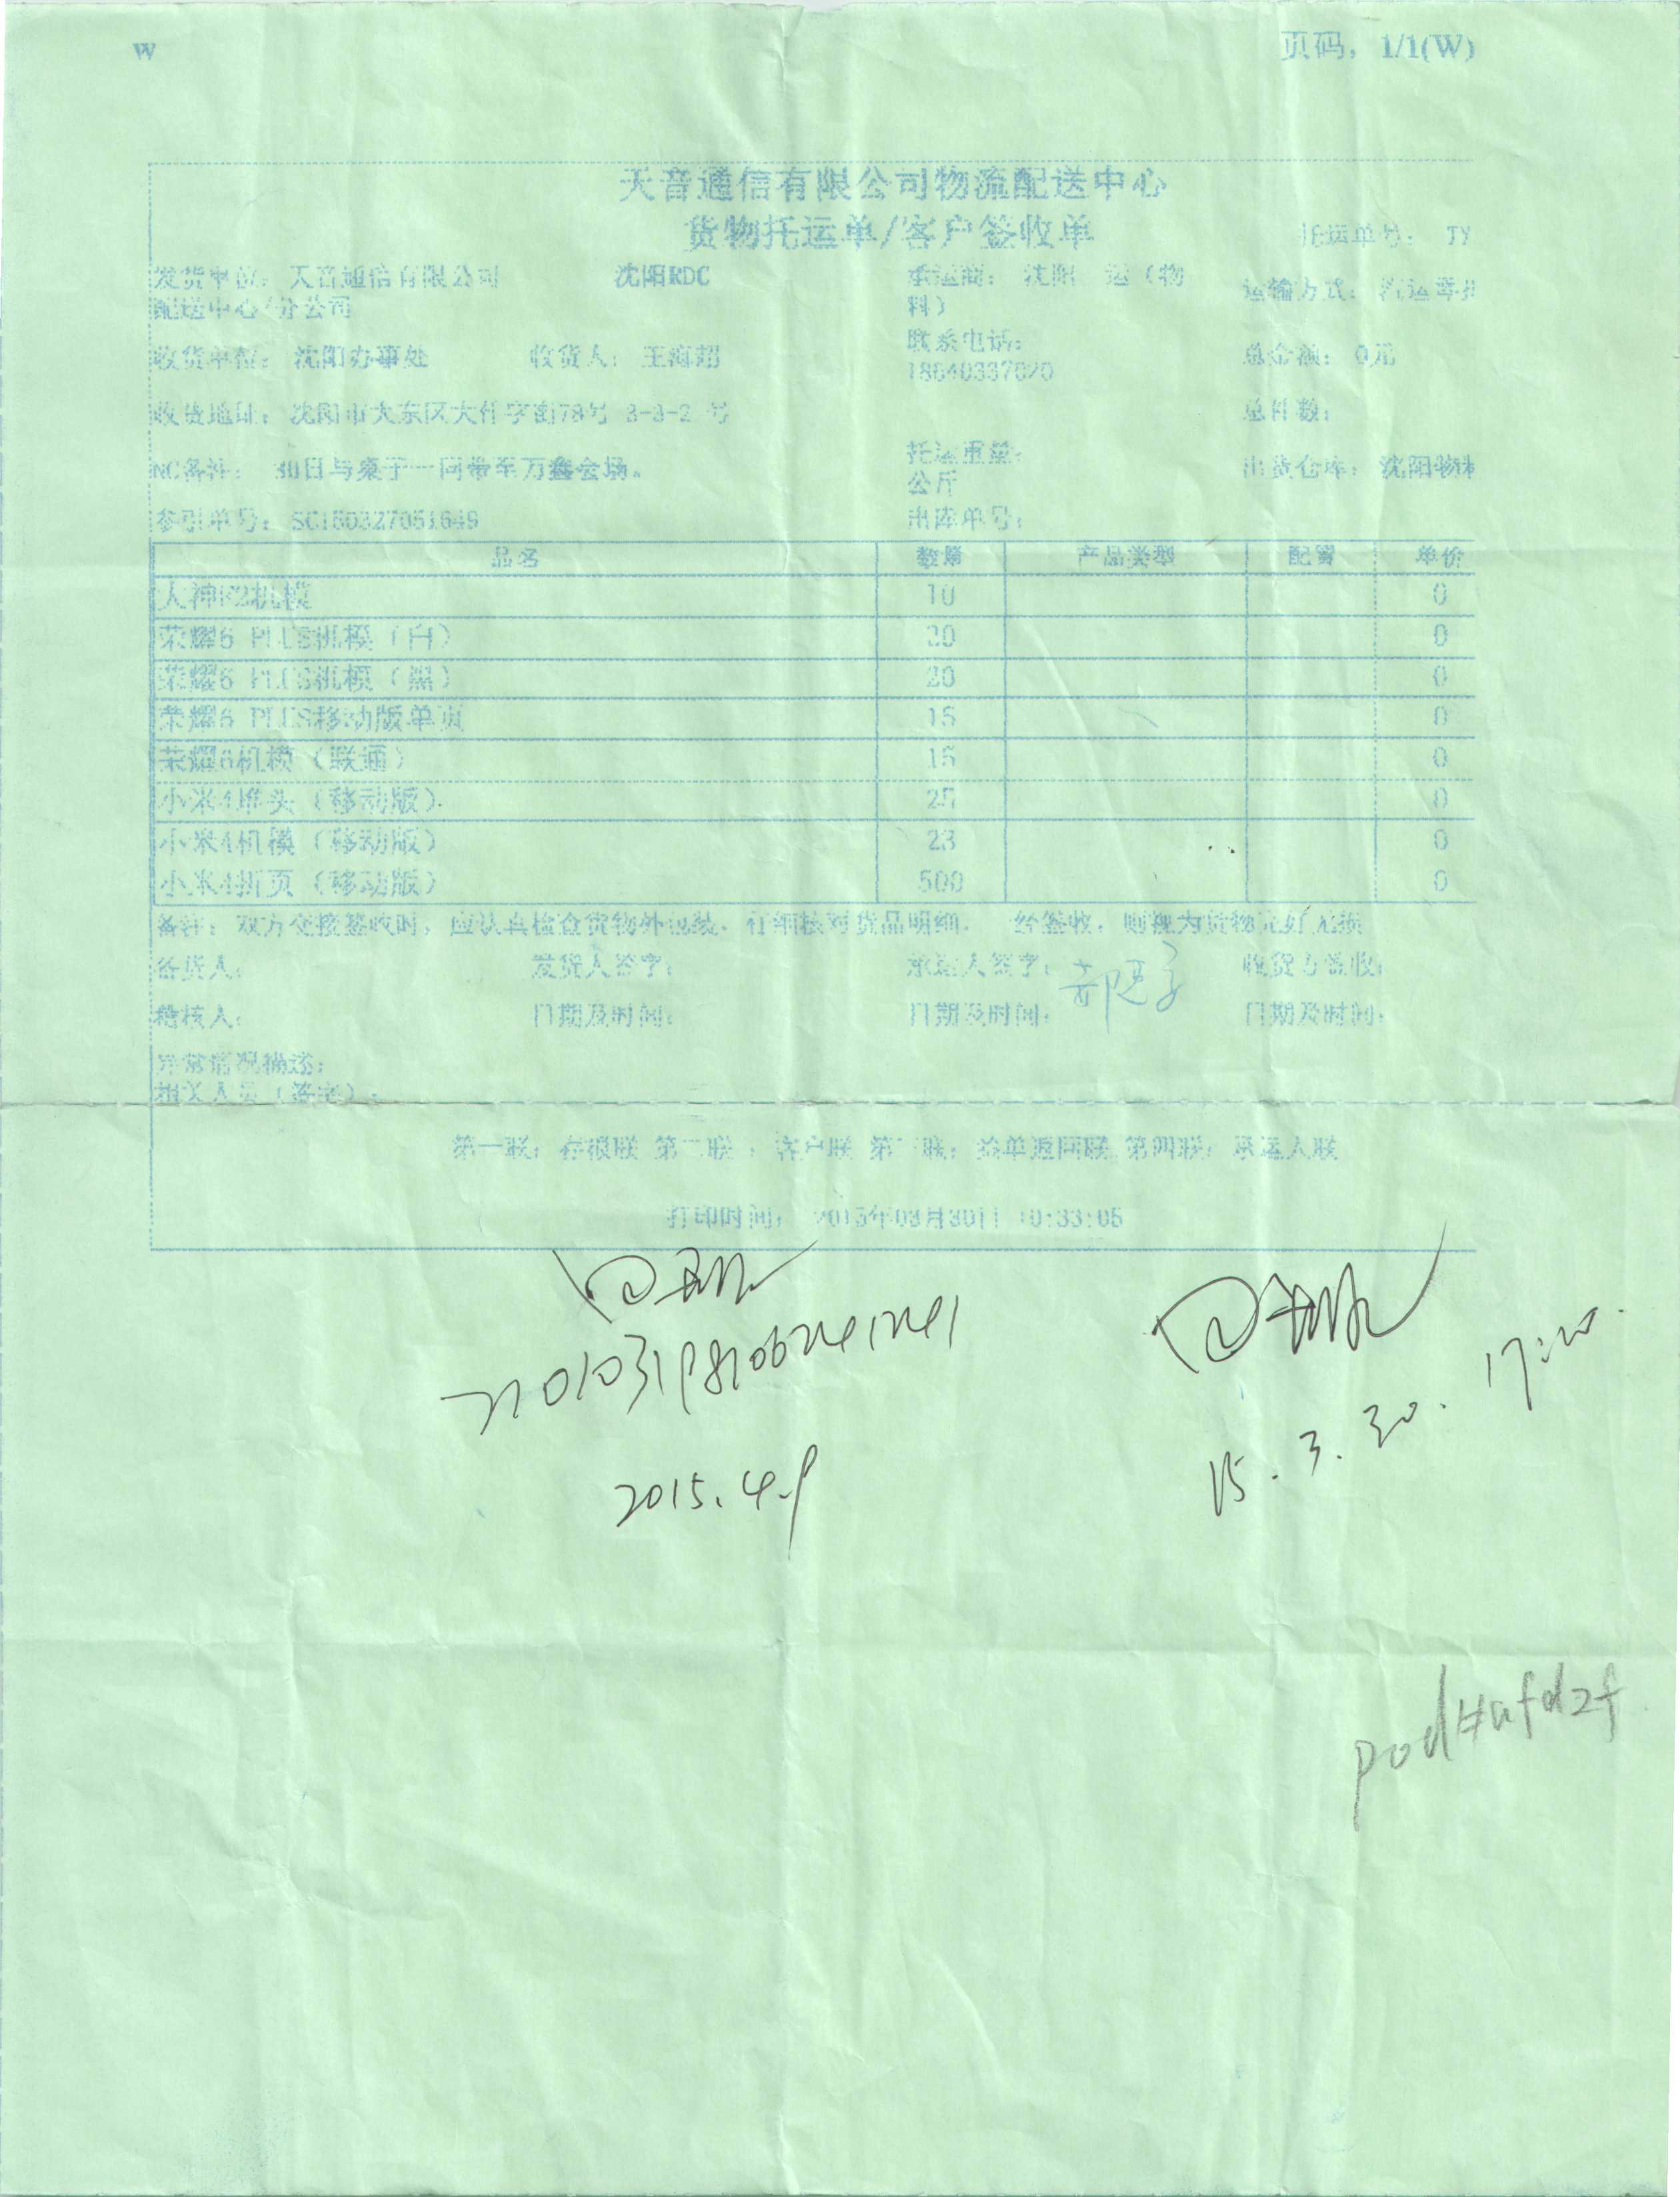 W 页码，1/1(W)
天音通信有限公司物流配送中心
货物托运单/客户签收单
托运单号： TY
发货单位：天音通信有限公司 沈阳RDC 承运商：沈阳 运（物 运输方式：
配送中心/分公司 料）
收货单位：沈阳办事处 收货人：王海超 联系电话： 总金额：0元
18640337020
收货地址：沈阳市大东区大什字街78号 3-3-2 号 总件数：
NC备注： 30日与桌子一同带至万鑫会场。 托运重量： 出货仓库：沈阳物
公斤
参引单号：SC150327051649 出库单号：
品名 数量 产品类型 配置 单价
大神F2机模 10 0
荣耀6 PLUS机模（白） 20 0
荣耀6 PLUS机模（黑） 20 0
荣耀6 PLUS移动版单页 15 0
荣耀6机模（联通） 15 0
小米4堆头（移动版） 25 0
小米4机模（移动版） 23 0
小米4折页（移动版） 500 0
备注：双方交接签收时，应认真检查货物外包装，仔细核对货品明细。 经签收，则视为货物完好无损
备货人： 发货人签字： 承运人签字： 收货方签收：
稽核人： 日期及时间： 日期及时间： 日期及时间：
异常情况描述：
相关人员（签字）：
第一联：存根联 第二联：客户联 第三联：签单返回联 第四联：承运人联
打印时间： 2015年03月30日 10:33:05
2015.4.9
15.3.30. 17:20.
pod#afd2f